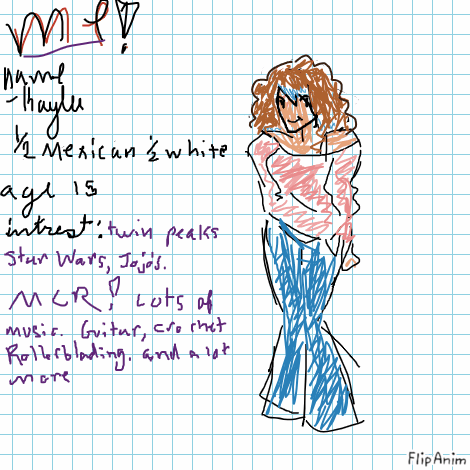 me!
name
- Kaylee
½ Mexican ½ white
age 15
intrest: twin peaks
Star Wars, Jojo's.
MCR! Lots of
music. Guitar, crochet
Rollerblading. and a lot
more
FlipAnim